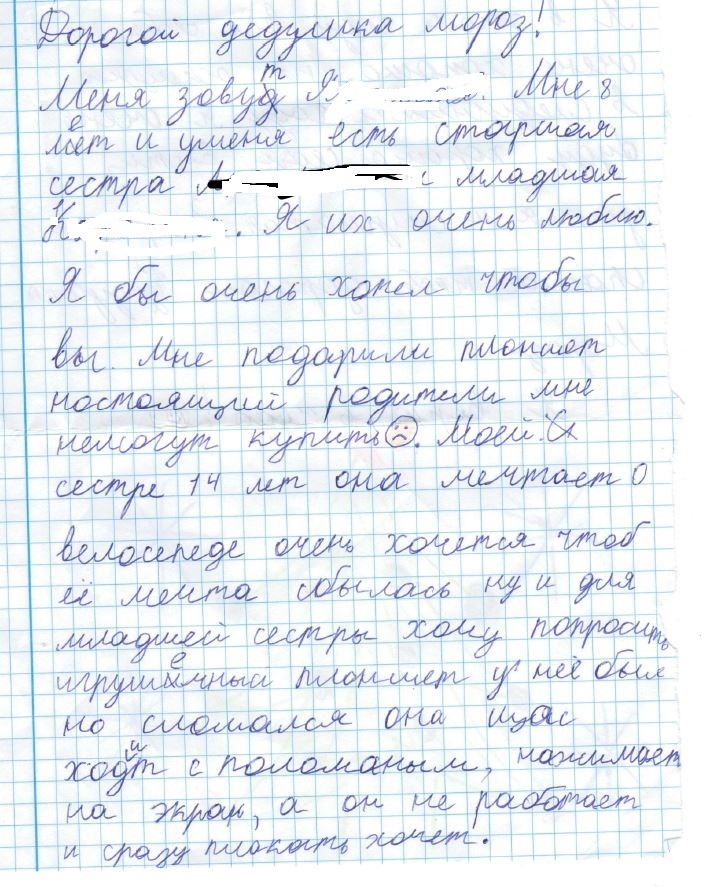 Дорогой дедушка мороз!
Меня зовут Я. Мне 8
лет и уменя есть старшая
сестра и младшая
К. . Я их очень люблю.
Я бы очень хотел чтобы
вы. Мне подарили планшет
настоящий родители мне
немогут купить☹. Моей
сестре 14 лет она мечтает о
велосепеде очень хочется чтоб
её мечта сбылась ну и для
младшей сестры хочу попросить
игрушечный планшет у неё был
но сломался она щас
ходит с поломаным, нажимает
на экран, а он не работает
и сразу плакать хочет.